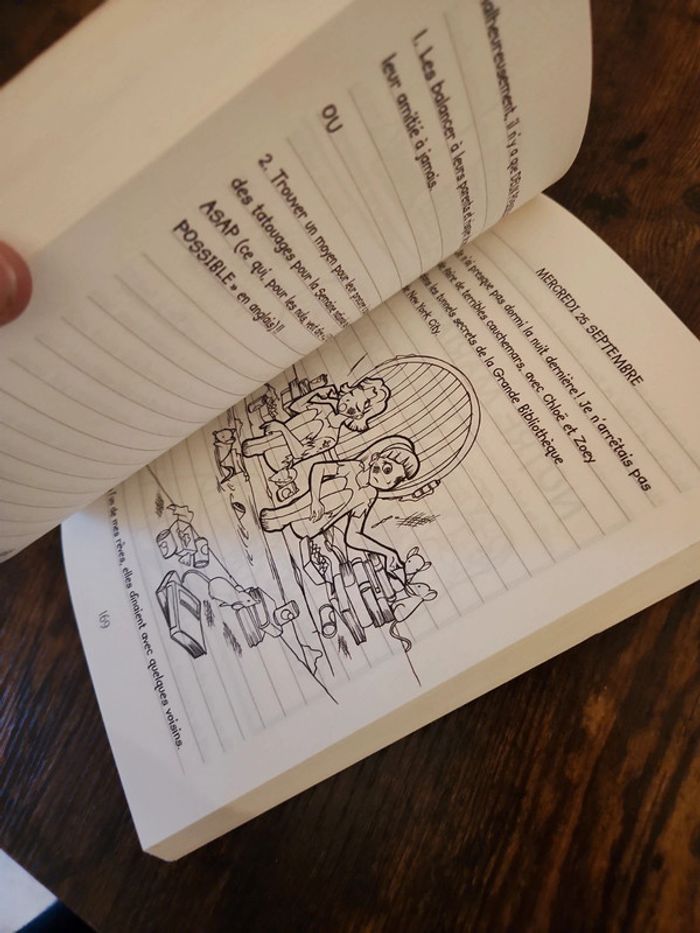 malheureusement, il n'y a que DEUX
1. Les balancer à leurs parents et
leur amitié à jamais.
OU
2. Trouver un moyen pour
des tatouages pour la Semaine
ASAP (ce qui, pour les nuls, veut dire
POSSIBLE » en anglais) !!
MERCREDI 25 SEPTEMBRE
presque pas dormi la nuit dernière ! Je n'arrêtais pas
faire de terribles cauchemars, avec Chloë et Zoey
dans les tunnels secrets de la Grande Bibliothèque
New York City.
de mes rêves, elles dînaient avec quelques voisins.
169